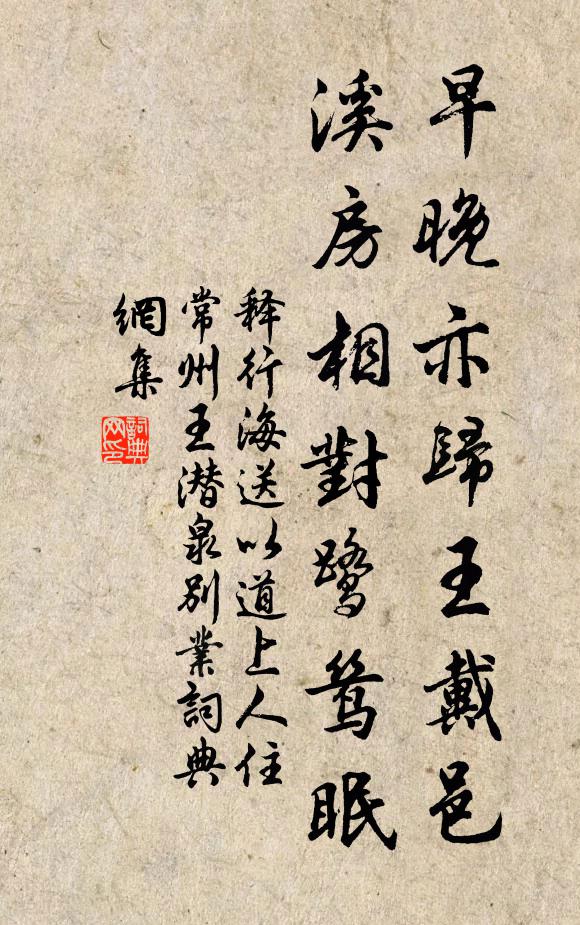 早晚亦歸王戴邑
溪房相對鷺鴛眠
释行海送以道上人住
常州王潜泉別業詞典
網集
詞典
网印